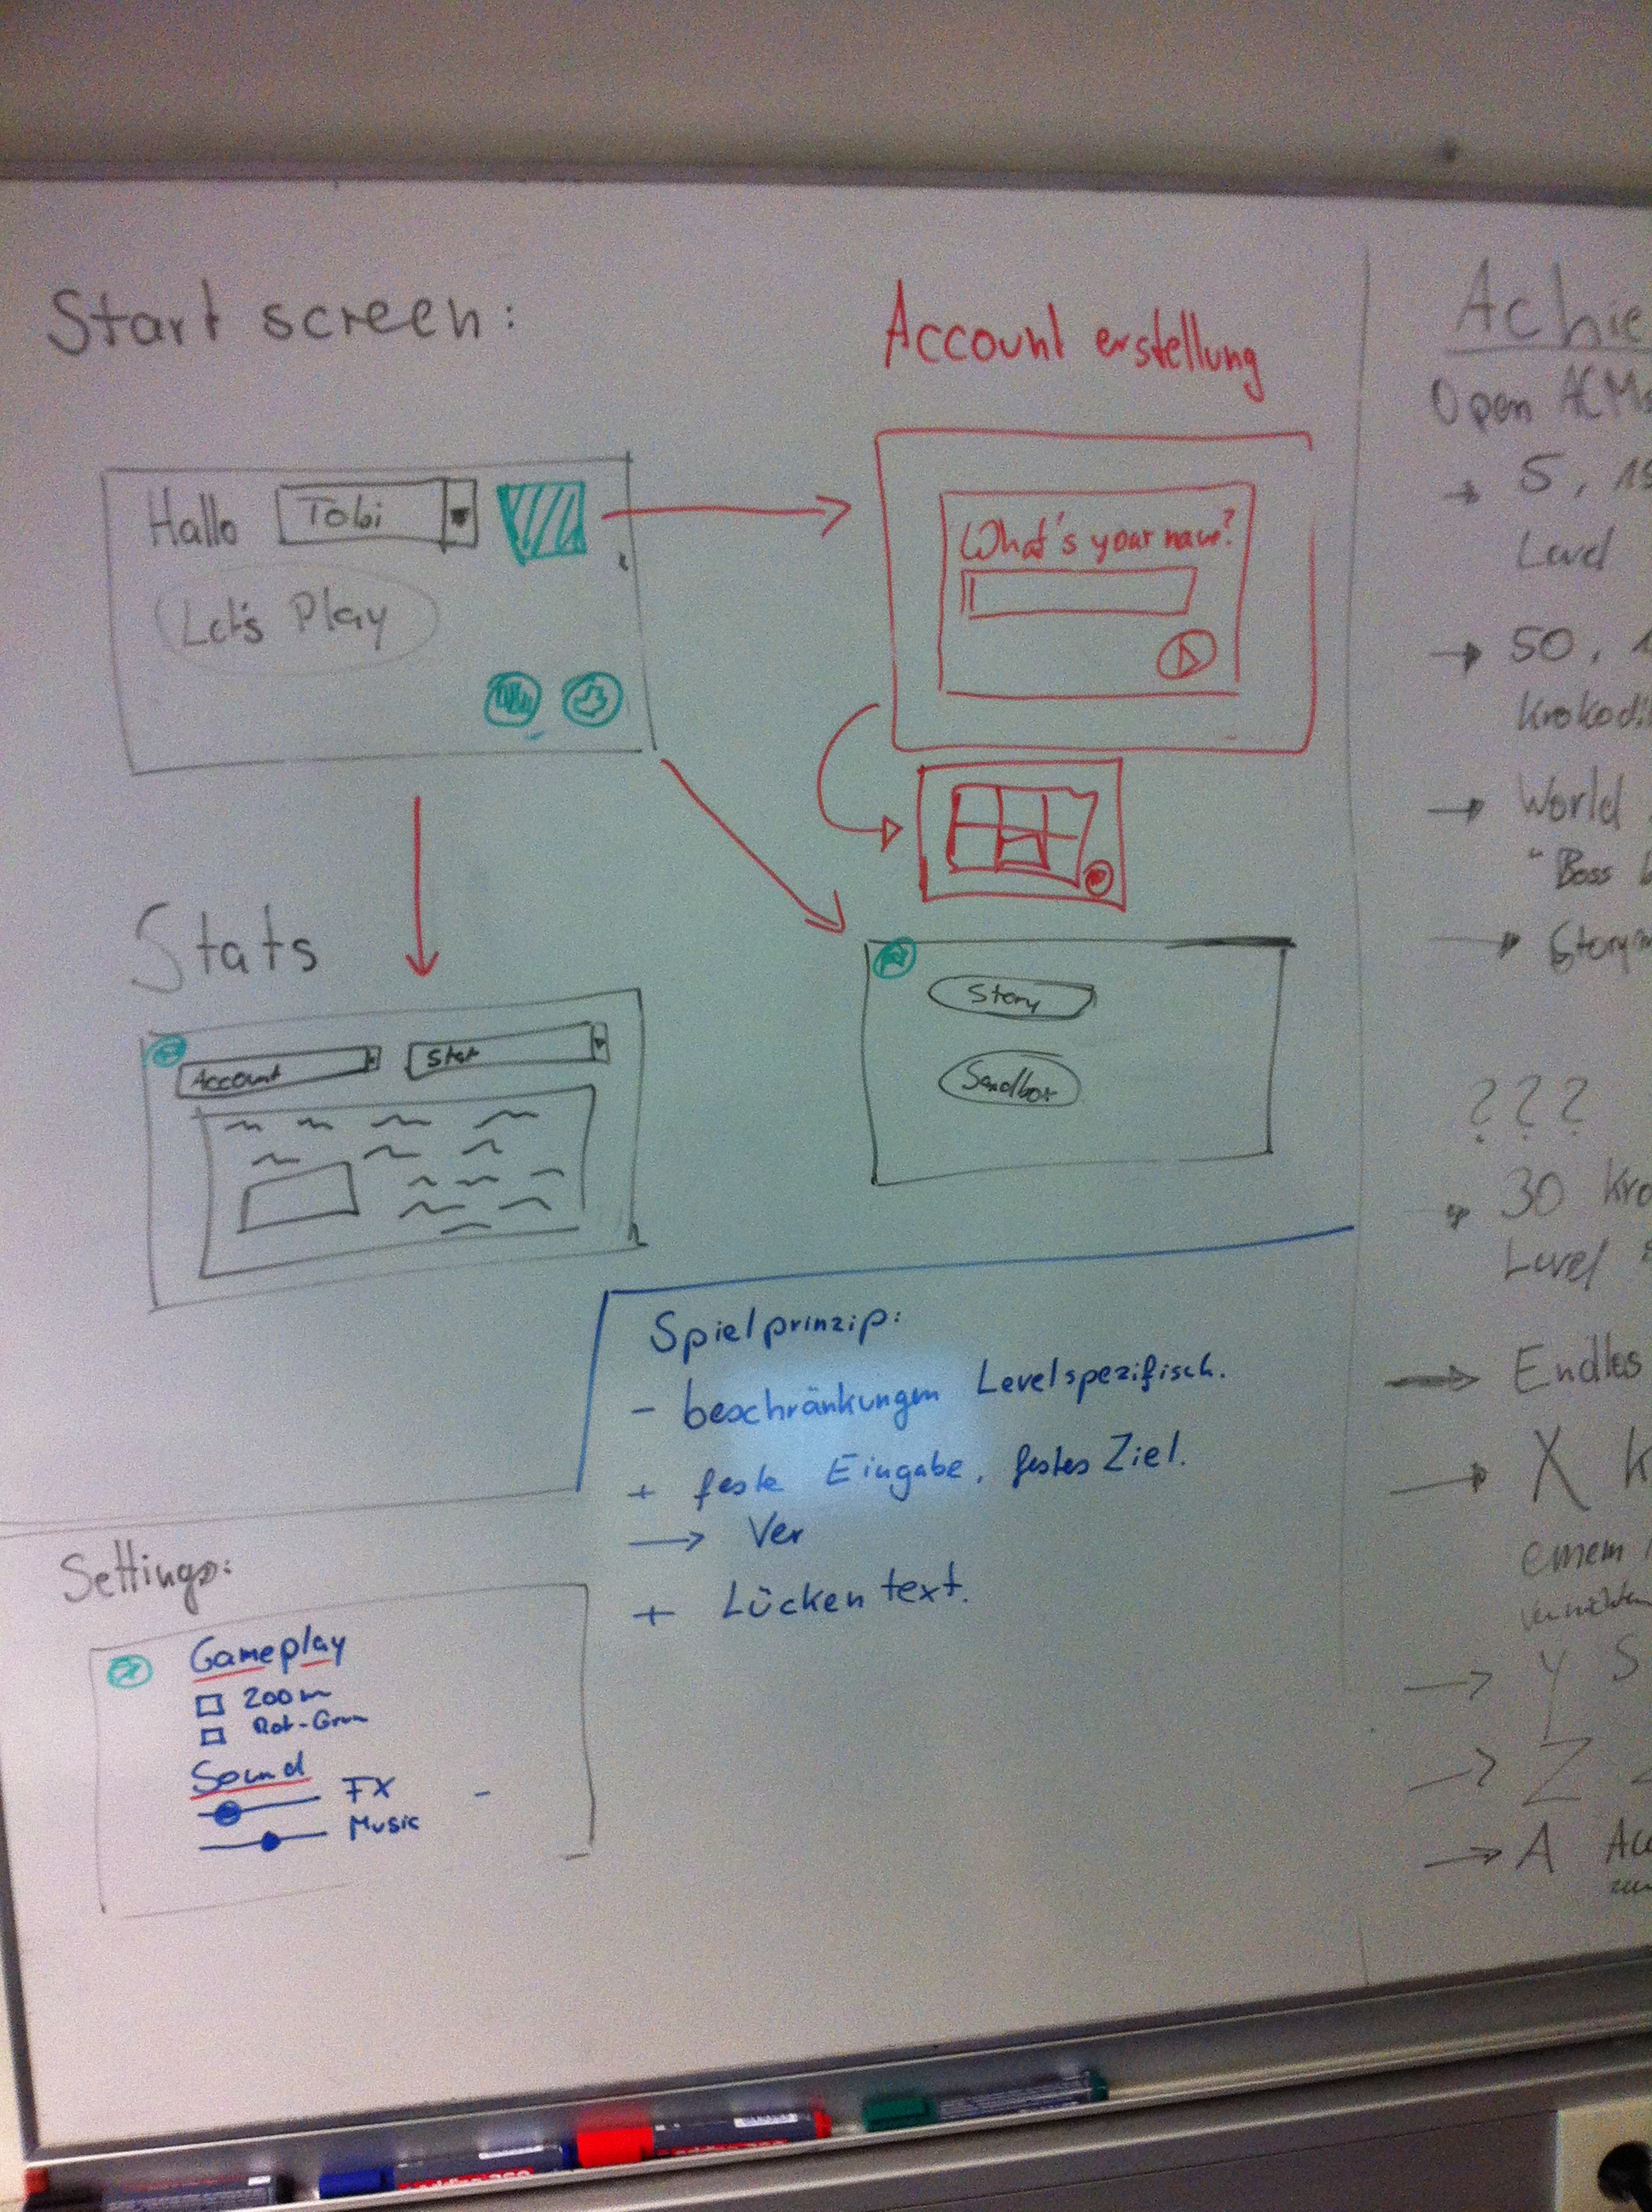 Start screen:
Hallo Tobi
Let's Play
Account erstellung
What's your name?
Stats
Account
Stat
Story
Sandbox
Spielprinzip:
- beschränkungen Levelspezifisch.
+ feste Eingabe, festes Ziel.
→ Ver
+ Lückentext.
Settings:
Gameplay
Zoom
Rot-Grün
Sound
FX
Music
Achie
Open
→ 5, 15
Level
→ 50, 1
Krokodi
→ World
"Boss
→ Story
???
→ 30 Kro
Level
→ Endlos
→ X K
einem
→ Y S
→ Z
→ A